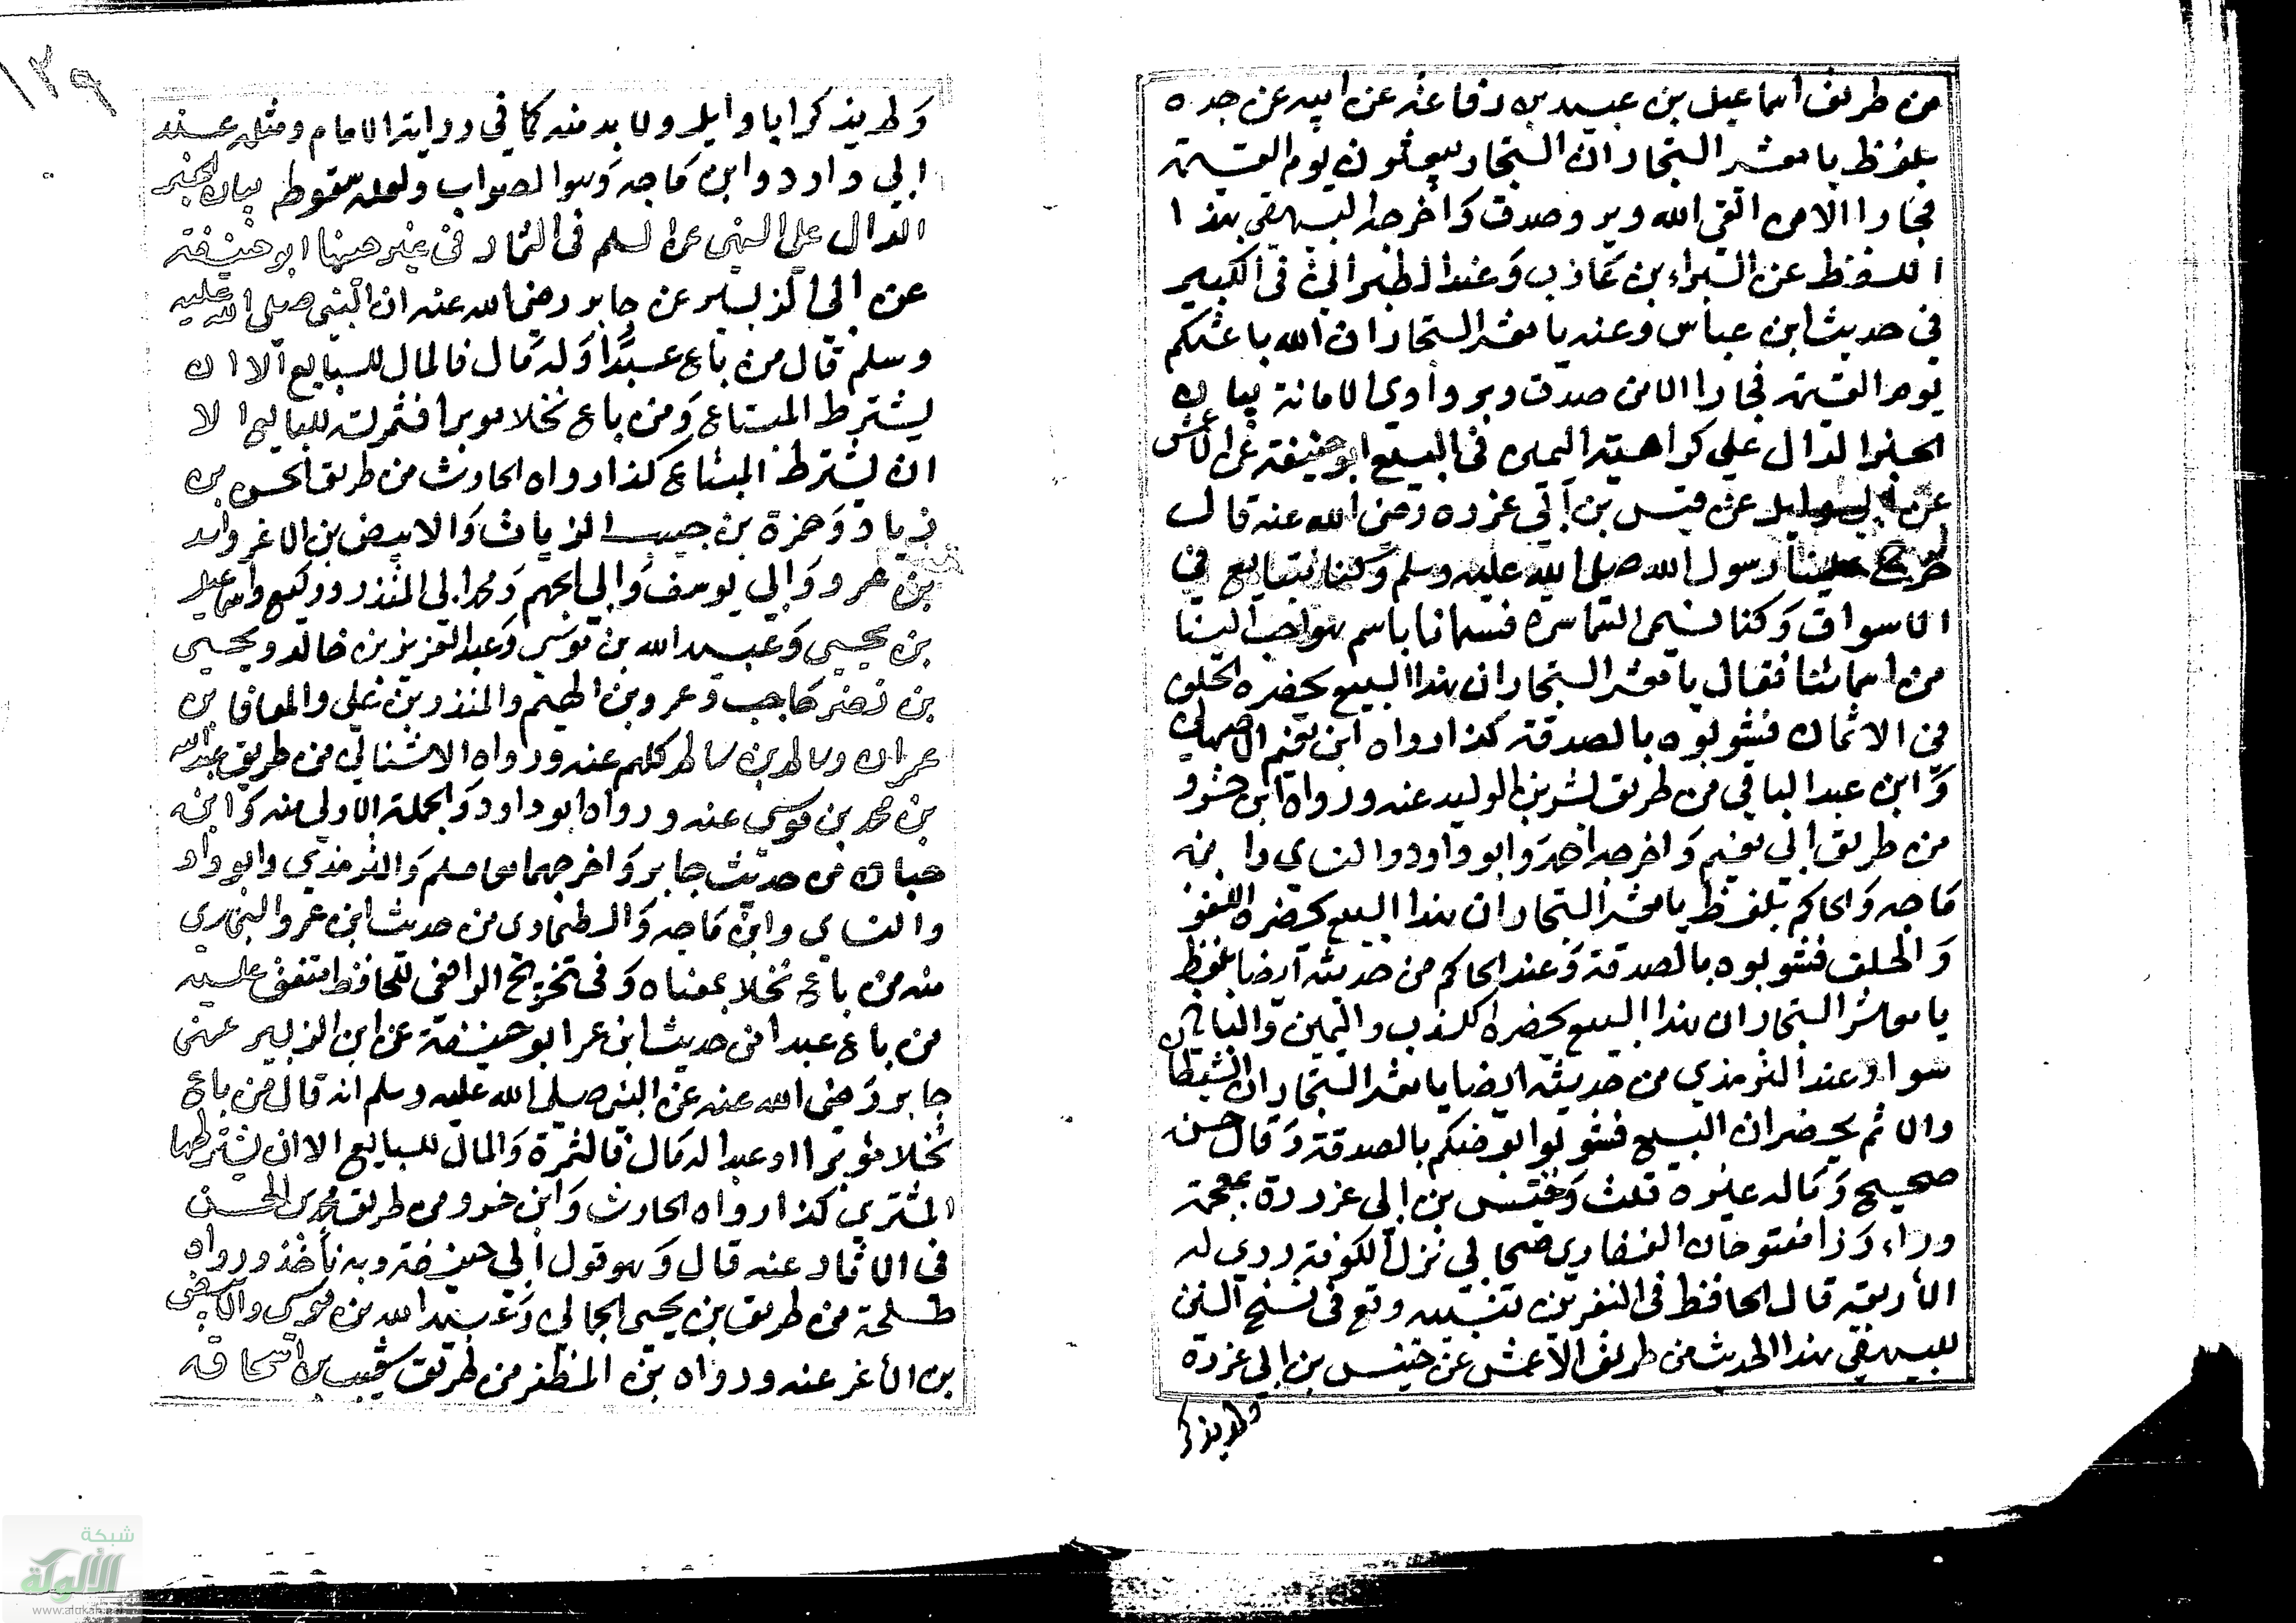 من طريق اسماعيل بن عبيد بن رفاعة عن ابيه عن جده
بلفظ يا معشر التجار ان التجار يبعثون يوم القيمة
فجارا الا من اتقى الله وبر وصدق واخرجه البيهقي بهذا
اللفظ عن البراء بن عازب وعند الطبراني في الكبير
في حديث ابن عباس وعنه يا معشر التجار ان الله باعثكم
يوم القيمة فجارا الا من صدق وبر وادى الامانة بيان
الخبر الدال على كراهية اليمين في البيع ابو حنيفة عن
عن قيس بن أبي غرزه رضي الله عنه قال
خرج علينا رسول الله صلى الله عليه وسلم وكنا نتبايع في
الاسواق وكنا نسمى السماسره فسمانا باسم هو احب الينا
من اسمائنا فقال يا معشر التجار ان هذا البيع يحضره الحلف
في الاثمان فشوبوه بالصدقة كذا رواه ابن
وابن عبد الباقي من طريق بشر بن الوليد عنه ورواه ابن خسرو
من طريق ابي نعيم واخرجه احمد وابو داود والنساي وابن
ماجه والحاكم بلفظ يا معشر التجار ان هذا البيع يحضره اللغو
والحلف فشوبوه بالصدقة وعند الحاكم من حديثه أيضا بلفظ
يا معاشر التجار ان هذا البيع يحضره الكذب واليمين والباقي
سوا وعند الترمذي من حديثه ايضا يا معشر التجار ان الشيطان
والاثم يحضران البيع فشوبوا بيعكم بالصدقة وقال حسن
صحيح وماله غيره قلت وقيس بن ابي غرزة بمعجمة
وراء وزا مفتوحات الغفاري صحابي نزل الكوفة روي له
الأربعة قال الحافظ في التقريب تنبيه وقع في نسخ السنن
للبيهقي هذا الحديث من طريق الاعمش عن قيس بن ابي غرزة
ولم يذكر
١٣٩
ولم يذكر ابا وايل ولا بد منه كما في رواية الامام ومثله عند
ابي داود وابن ماجه وهو الصواب ولعله سقوط بيان الخبر
الدال على النهي عن السلم في الثمار في غير حينها ابو حنيفة
عن ابي الزبير عن جابر رضي الله عنه ان النبي صلى الله عليه
وسلم قال من باع عبدا وله مال فالمال للبايع الا ان
يشترط المبتاع ومن باع نخلا موبرا فثمرته للبايع الا
ان يشترط المبتاع كذا رواه الحارث من طريق الحسن بن
زياد وحمزة بن حبيب الزيات والابيض بن الاغر واسد
بن عمرو وابي يوسف وابي الجهم ومحمد ابي المنذر ووكيع واسماعيل
بن يحيى وعبيد الله بن موسي وعبد العزيز بن خالد ويحيى
بن نصر بن حاجب وعمرو بن الهيثم والمنذر بن علي والمعافا بن
عمران وسالم بن سالم كلهم عنه ورواه الاشناني من طريق عبد الله
بن محمد بن موسي عنه ورواه ابو داود والجملة الاولي منه وابن
حبان من حديث جابر واخرجهما معا مسلم والترمذي وابو داود
والنساي وابن ماجه والطحاوي من حديث ابن عمر والبخاري
منه من باع نخلا بمعناه وفي تخريج الرافعي للحافظ متفق عليه
من باع عبدا في حديث ابن عمر ابو حنيفة عن ابن الزبير عن
جابر رضي الله عنه عن النبي صلى الله عليه وسلم انه قال من باع
نخلا مؤبرا او عبدا له مال فالثمرة والمال للبايع الا ان يشترطها
المشتري كذا رواه الحارث وابن خسرو من طريق محمد بن الحسن
في الاثار عنه قال وهو قول أبي حنيفة وبه نأخذ ورواه
طلحة من طريق بن يحيى الحماني وعبيد الله بن موسي والابيض
بن الاغر عنه ورواه بن المظفر من طريق شعيب بن اسحاق
شبكة
الألوكة
www.alukah.net